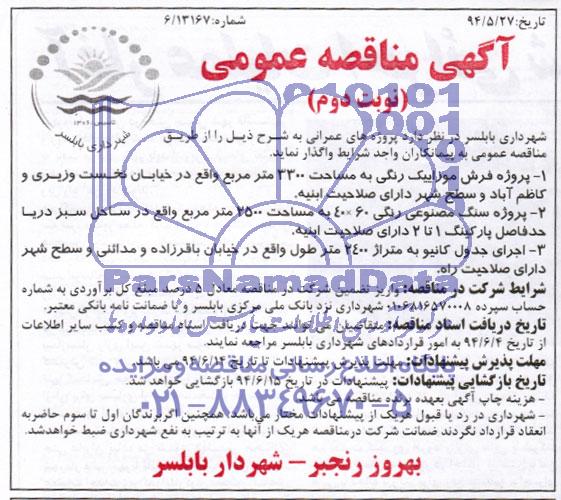 تاریخ: ۹۴/۵/۲۷
شماره: ۶/۱۳۱۶۷
آگهی مناقصه عمومی
(نوبت دوم)
شهرداری بابلسر
شهرداری بابلسر در نظر دارد پروژه های عمرانی به شرح ذیل را از طریق
مناقصه عمومی به پیمانکاران واجد شرایط واگذار نماید.
۱- پروژه فرش موزاییک رنگی به مساحت ۳۳۰۰ متر مربع واقع در خیابان نخست وزیری و
کاظم آباد و سطح شهر دارای صلاحیت ابنیه.
۲- پروژه سنگ مصنوعی رنگی ۶۰×۴۰ به مساحت ۲۵۰۰ متر مربع واقع در ساحل سبز دریا
حدفاصل پارکینگ ۱ تا ۲ دارای صلاحیت ابنیه.
۳- اجرای جدول کانیو به متراژ ۲۴۰۰ متر طول واقع در خیابان باقرزاده و مدائنی و سطح شهر
دارای صلاحیت راه.
شرایط شرکت در مناقصه: واریز تضمین شرکت در مناقصه معادل ۵ درصد مبلغ کل برآوردی به شماره
حساب سپرده ۰۱۰۶۸۱۶۵۷۰۰۰۸ شهرداری نزد بانک ملی مرکزی بابلسر و یا ضمانت نامه بانکی معتبر.
تاریخ دریافت اسناد مناقصه: متقاضیان می توانند جهت دریافت اسناد مناقصه و کسب سایر اطلاعات
از تاریخ ۹۴/۶/۴ به امور قراردادهای شهرداری بابلسر مراجعه نمایند.
مهلت پذیرش پیشنهادات: مهلت پذیرش پیشنهادات تا تاریخ ۹۴/۶/۱۴ می باشد.
تاریخ بازگشایی پیشنهادات: پیشنهادات در تاریخ ۹۴/۶/۱۵ بازگشایی خواهد شد.
- هزینه چاپ آگهی بعهده برنده مناقصه می باشد.
- شهرداری در رد یا قبول هریک از پیشنهادات مختار می باشد. همچنین اگر برندگان اول تا سوم حاضر به
انعقاد قرارداد نگردند ضمانت شرکت در مناقصه هریک از آنها به ترتیب به نفع شهرداری ضبط خواهد شد.
بهروز رنجبر – شهردار بابلسر
ParsNamadData
پایگاه اطلاع رسانی مناقصه و مزایده
۰۲۱-۸۸۳۴۹۶۷۰-۵